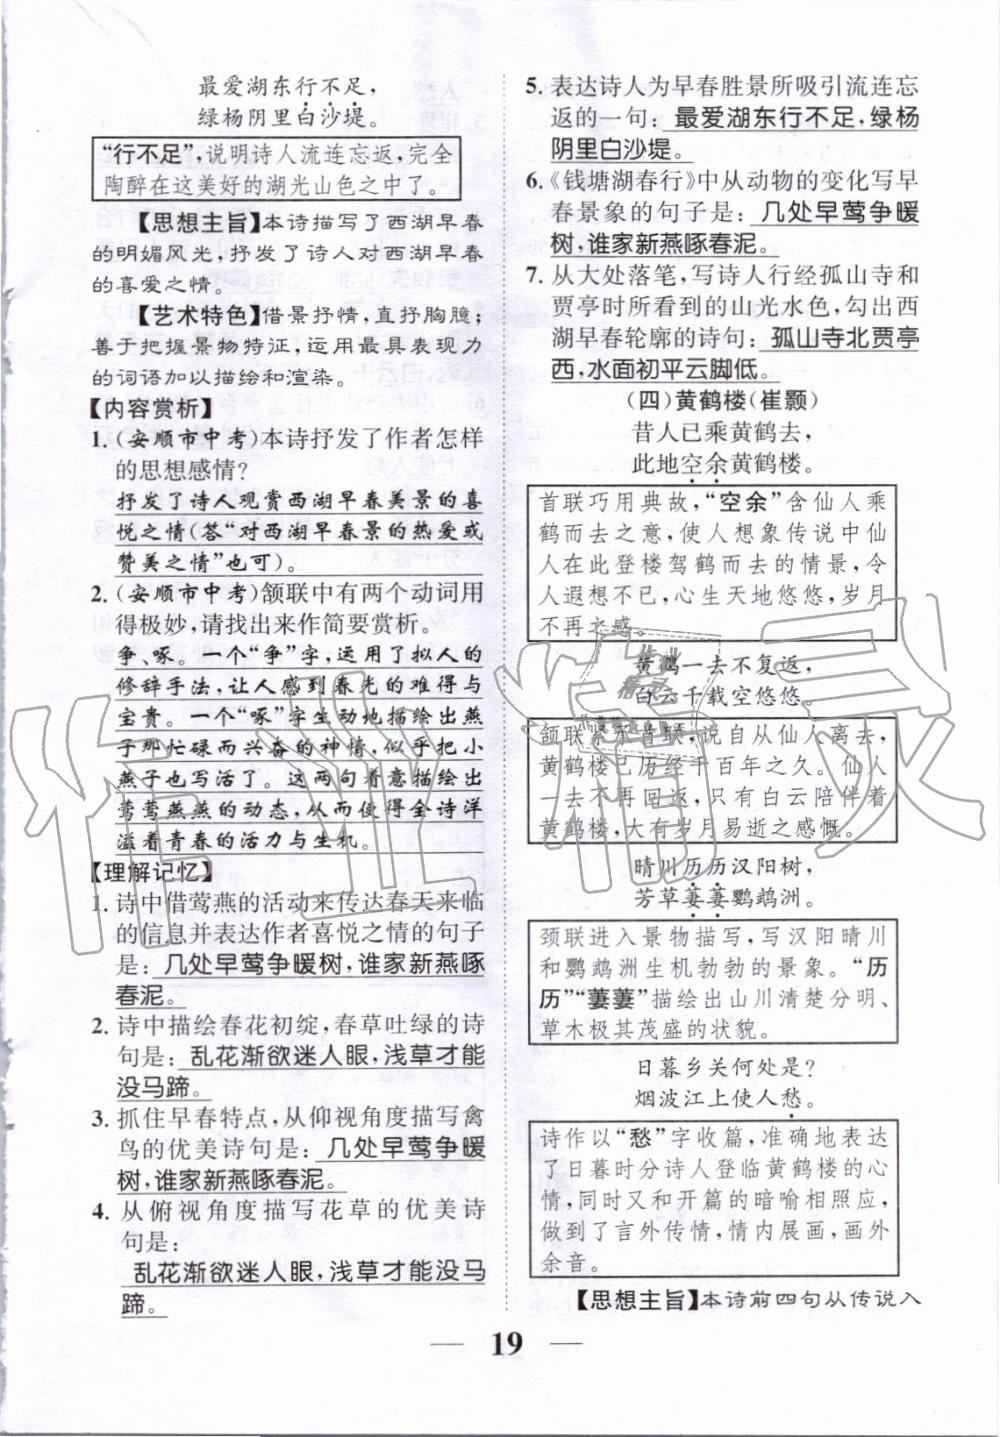 最爱湖东行不足,
绿杨阴里白沙堤。
“行不足”,说明诗人流连忘返,完全
陶醉在这美好的湖光山色之中了。
【思想主旨】本诗描写了西湖早春
的明媚风光,抒发了诗人对西湖早春
的喜爱之情。
【艺术特色】借景抒情,直抒胸臆;
善于把握景物特征,运用最具表现力
的词语加以描绘和渲染。
【内容赏析】
1.(安顺市中考)本诗抒发了作者怎样
的思想感情?
抒发了诗人观赏西湖早春美景的喜
悦之情(答“对西湖早春景的热爱或
赞美之情”也可)。
2.(安顺市中考)颔联中有两个动词用
得极妙,请找出来作简要赏析。
争、啄。一个“争”字,运用了拟人的
修辞手法,让人感到春光的难得与
宝贵。一个“啄”字生动地描绘出燕
子那忙碌而兴奋的神情,似乎把小
燕子也写活了。这两句着意描绘出
莺莺燕燕的动态,从而使得全诗洋
溢着青春的活力与生机。
【理解记忆】
1.诗中借莺燕的活动来传达春天来临
的信息并表达作者喜悦之情的句子
是:几处早莺争暖树,谁家新燕啄
春泥。
2.诗中描绘春花初绽,春草吐绿的诗
句是:乱花渐欲迷人眼,浅草才能
没马蹄。
3.抓住早春特点,从仰视角度描写禽
鸟的优美诗句是:几处早莺争暖
树,谁家新燕啄春泥。
4.从俯视角度描写花草的优美诗
句是:
乱花渐欲迷人眼,浅草才能没马
蹄。
5.表达诗人为早春胜景所吸引流连忘
返的一句:最爱湖东行不足,绿杨
阴里白沙堤。
6.《钱塘湖春行》中从动物的变化写早
春景象的句子是:几处早莺争暖
树,谁家新燕啄春泥。
7.从大处落笔,写诗人行经孤山寺和
贾亭时所看到的山光水色,勾出西
湖早春轮廓的诗句:孤山寺北贾亭
西,水面初平云脚低。
(四)黄鹤楼(崔颢)
昔人已乘黄鹤去,
此地空余黄鹤楼。
首联巧用典故,“空余”含仙人乘
鹤而去之意,使人想象传说中仙
人在此登楼驾鹤而去的情景,令
人遐想不已,心生天地悠悠,岁月
不再之感。
黄鹤一去不复返,
白云千载空悠悠。
颔联紧承首联,说自从仙人离去,
黄鹤楼已历经千百年之久。仙人
一去不再回返,只有白云陪伴着
黄鹤楼,大有岁月易逝之感慨。
晴川历历汉阳树,
芳草萋萋鹦鹉洲。
颈联进入景物描写,写汉阳晴川
和鹦鹉洲生机勃勃的景象。“历
历”“萋萋”描绘出山川清楚分明、
草木极其茂盛的状貌。
日暮乡关何处是?
烟波江上使人愁。
诗作以“愁”字收篇,准确地表达
了日暮时分诗人登临黄鹤楼的心
情,同时又和开篇的暗喻相照应,
做到了言外传情,情内展画,画外
余音。
【思想主旨】本诗前四句从传说入
19
作业精灵